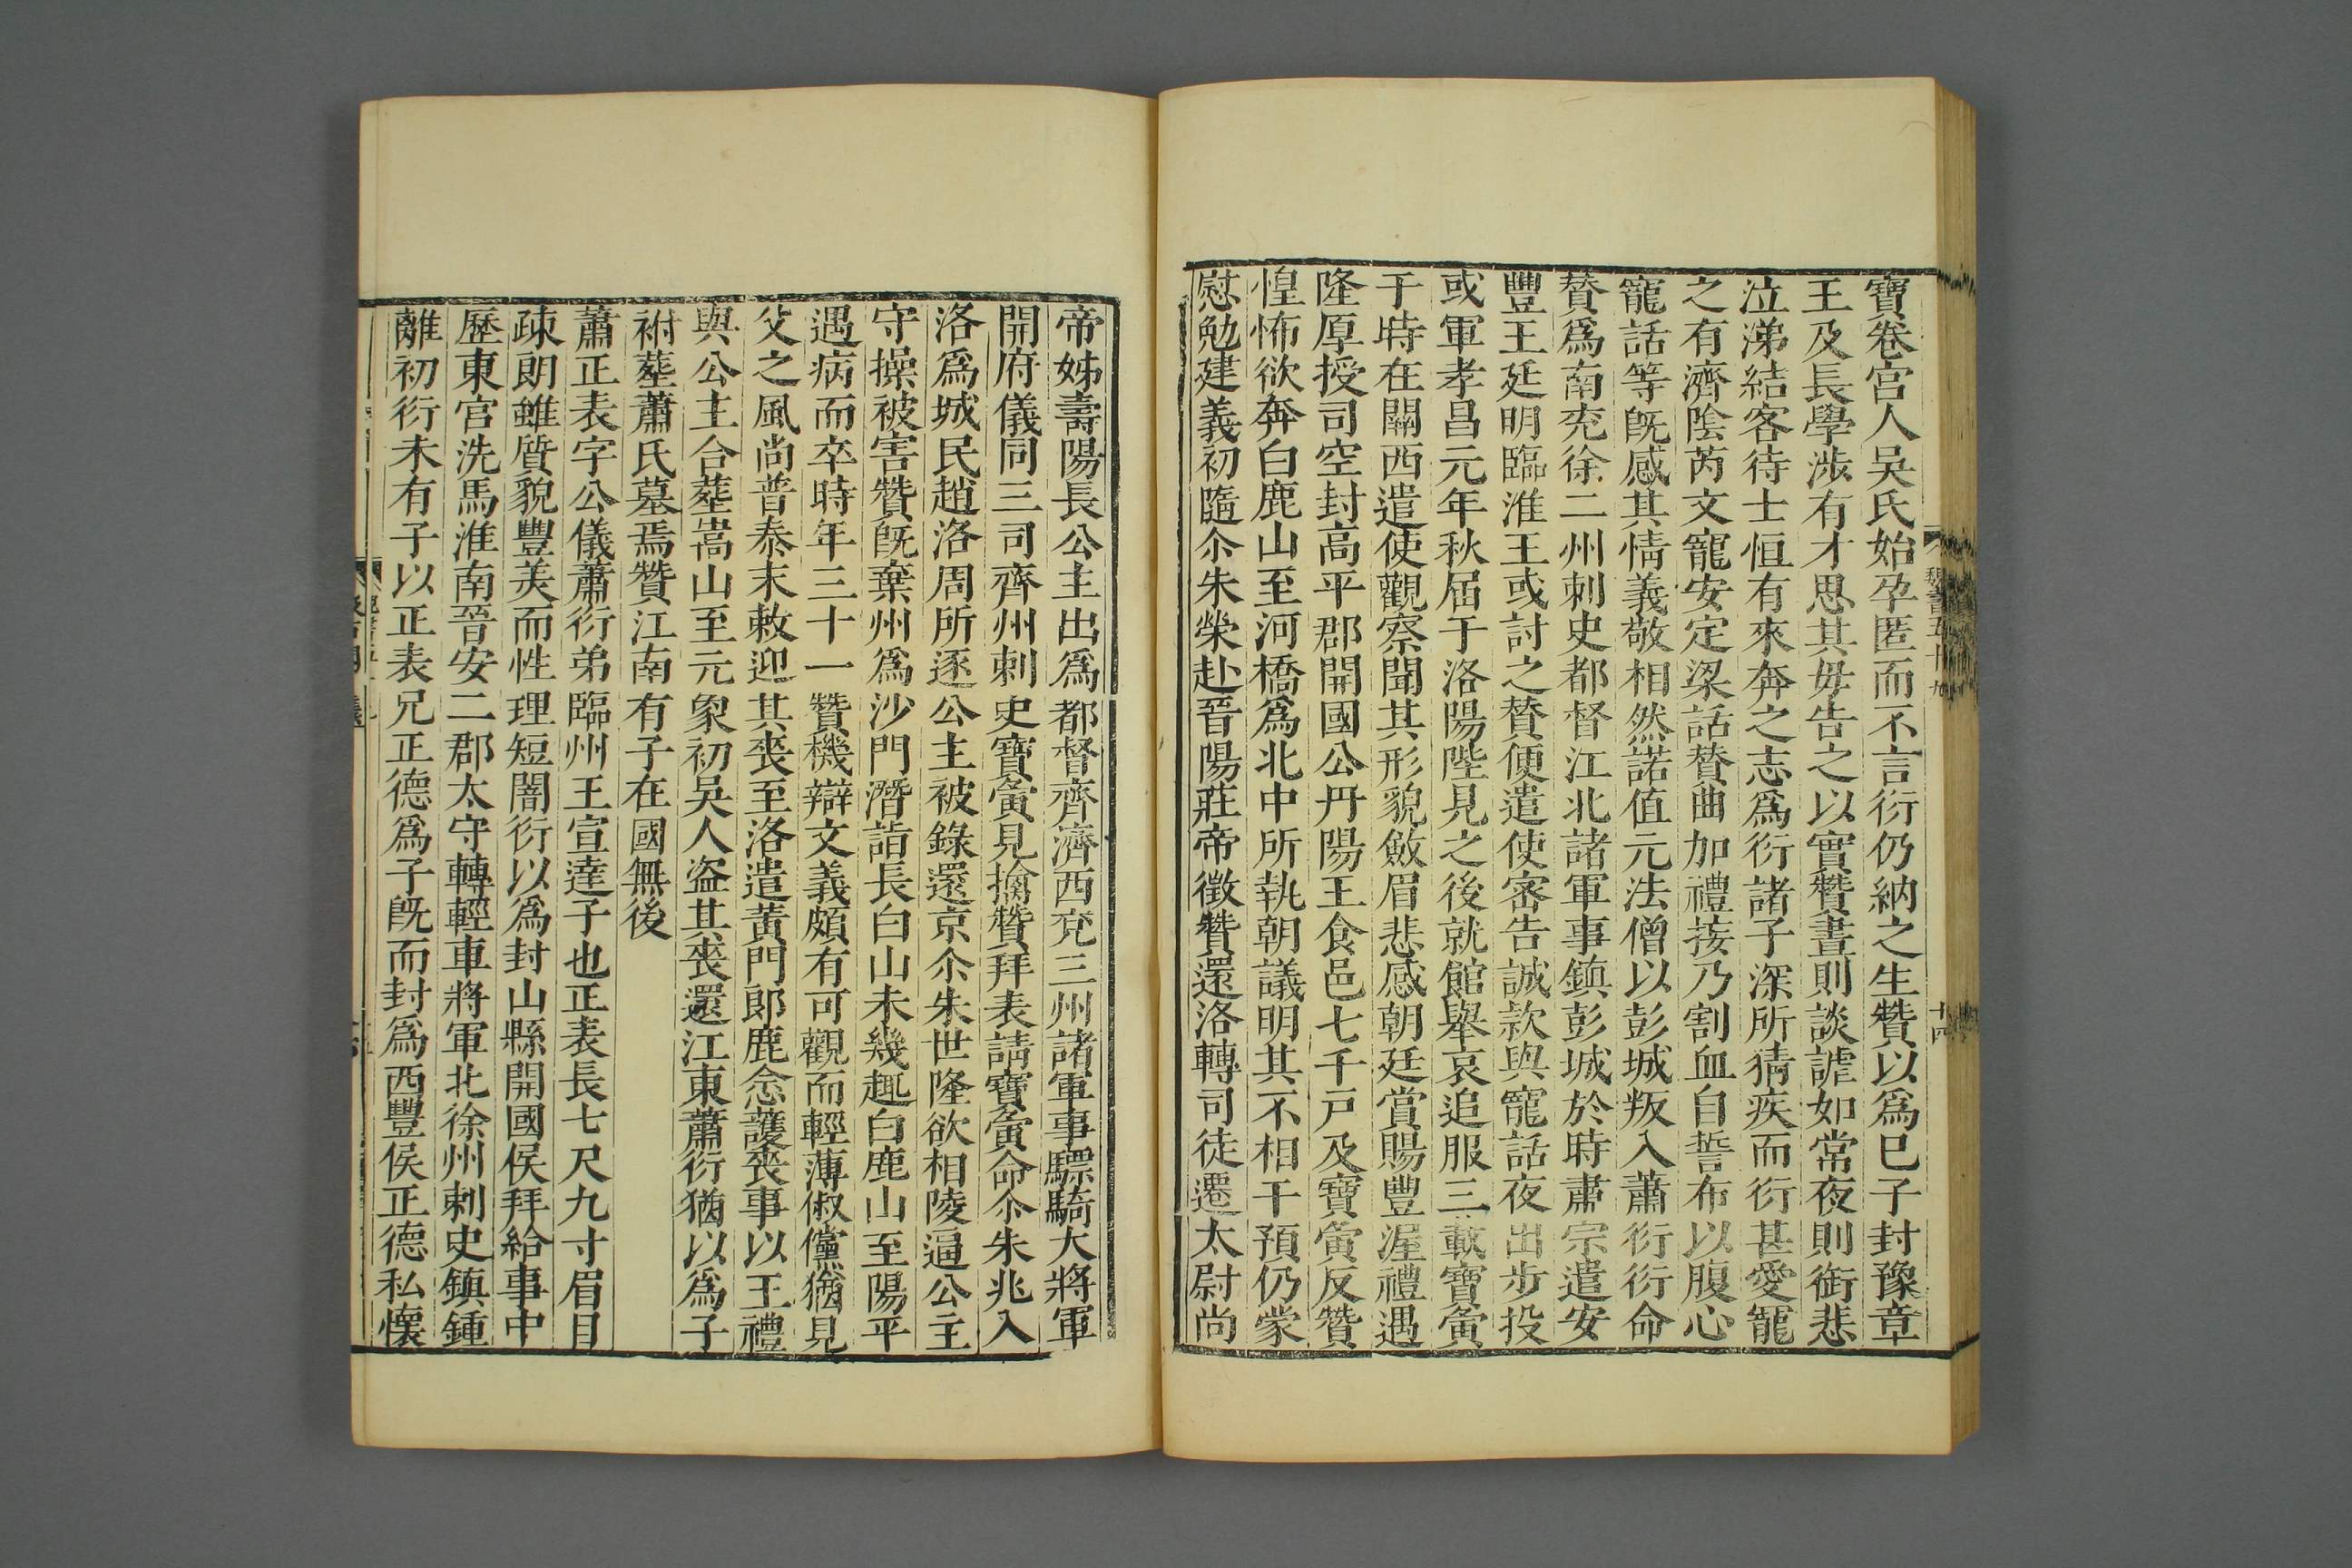 寶卷宮人吳氏始孕匿而不言衍仍納之生贊以爲巳子封豫章
王及長學涉有才思其毋告之以實贊晝則談謔如常夜則銜悲
泣涕結客待士恒有來奔之志爲衍諸子深所猜疾而衍甚愛寵
之有濟陰芮文寵安定梁話贊曲加禮接乃割血自誓布以腹心
寵話等旣感其情義敬相然諾值元法僧以彭城叛入蕭衍衍命
贊爲南兖徐二州刺史都督江北諸軍事鎮彭城於時肅宗遣安
豐王延明臨淮王或討之贊便遣使密告誠款與寵話夜出步投
或軍孝昌元年秋屆于洛陽陛見之後就館舉哀追服三載寶夤
于時在關西遣使觀察聞其形貌斂眉悲感朝廷賞賜豐渥禮遇
隆厚授司空封高平郡開國公丹陽王食邑七千戸及寶夤反贊
惶怖欲奔白鹿山至河橋爲北中所執朝議明其不相干預仍蒙
慰勉建義初隨尒朱榮赴晉陽莊帝徵贊還洛轉司徒遷太尉尚
魏書五十九
十四
帝姊壽陽長公主出爲都督齊濟西兖三州諸軍事驃騎大將軍
開府儀同三司齊州刺史寶夤見擒贊拜表請寶夤命尒朱兆入
洛爲城民趙洛周所逐公主被錄還京尒朱世隆欲相陵逼公主
守操被害贊旣棄州爲沙門潛詣長白山未幾趣白鹿山至陽平
遇病而卒時年三十一贊機辯文義頗有可觀而輕薄俶儻猶見
父之風尚普泰末敕迎其喪至洛遣黃門郎鹿悆護喪事以王禮
與公主合葬嵩山至元象初吳人盜其喪還江東蕭衍猶以爲子
祔葬蕭氏墓焉贊江南有子在國無後
蕭正表字公儀蕭衍弟臨州王宣達子也正表長七尺九寸眉目
疎朗雖質貌豐美而性理短闇衍以爲封山縣開國侯拜給事中
歷東宮洗馬淮南晉安二郡太守轉輕車將軍北徐州刺史鎮鍾
離初衍未有子以正表兄正德爲子旣而封爲西豐侯正德私懷